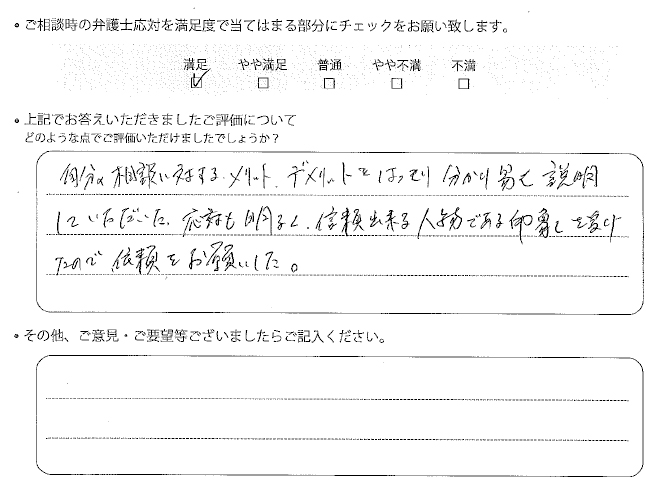 • ご相談時の弁護士応対を満足度で当てはまる部分にチェックをお願い致します。
満足 やや満足 普通 やや不満 不満
☑ □ □ □ □
• 上記でお答えいただきましたご評価について
どのような点でご評価いただけましたでしょうか?
自分の相談に対する、メリット、デメリットをはっきり分かり易く説明
していただいた。応対も明るく、信頼出来る人物である印象を受け
たので依頼をお願いした。
• その他、ご意見・ご要望等ございましたらご記入ください。